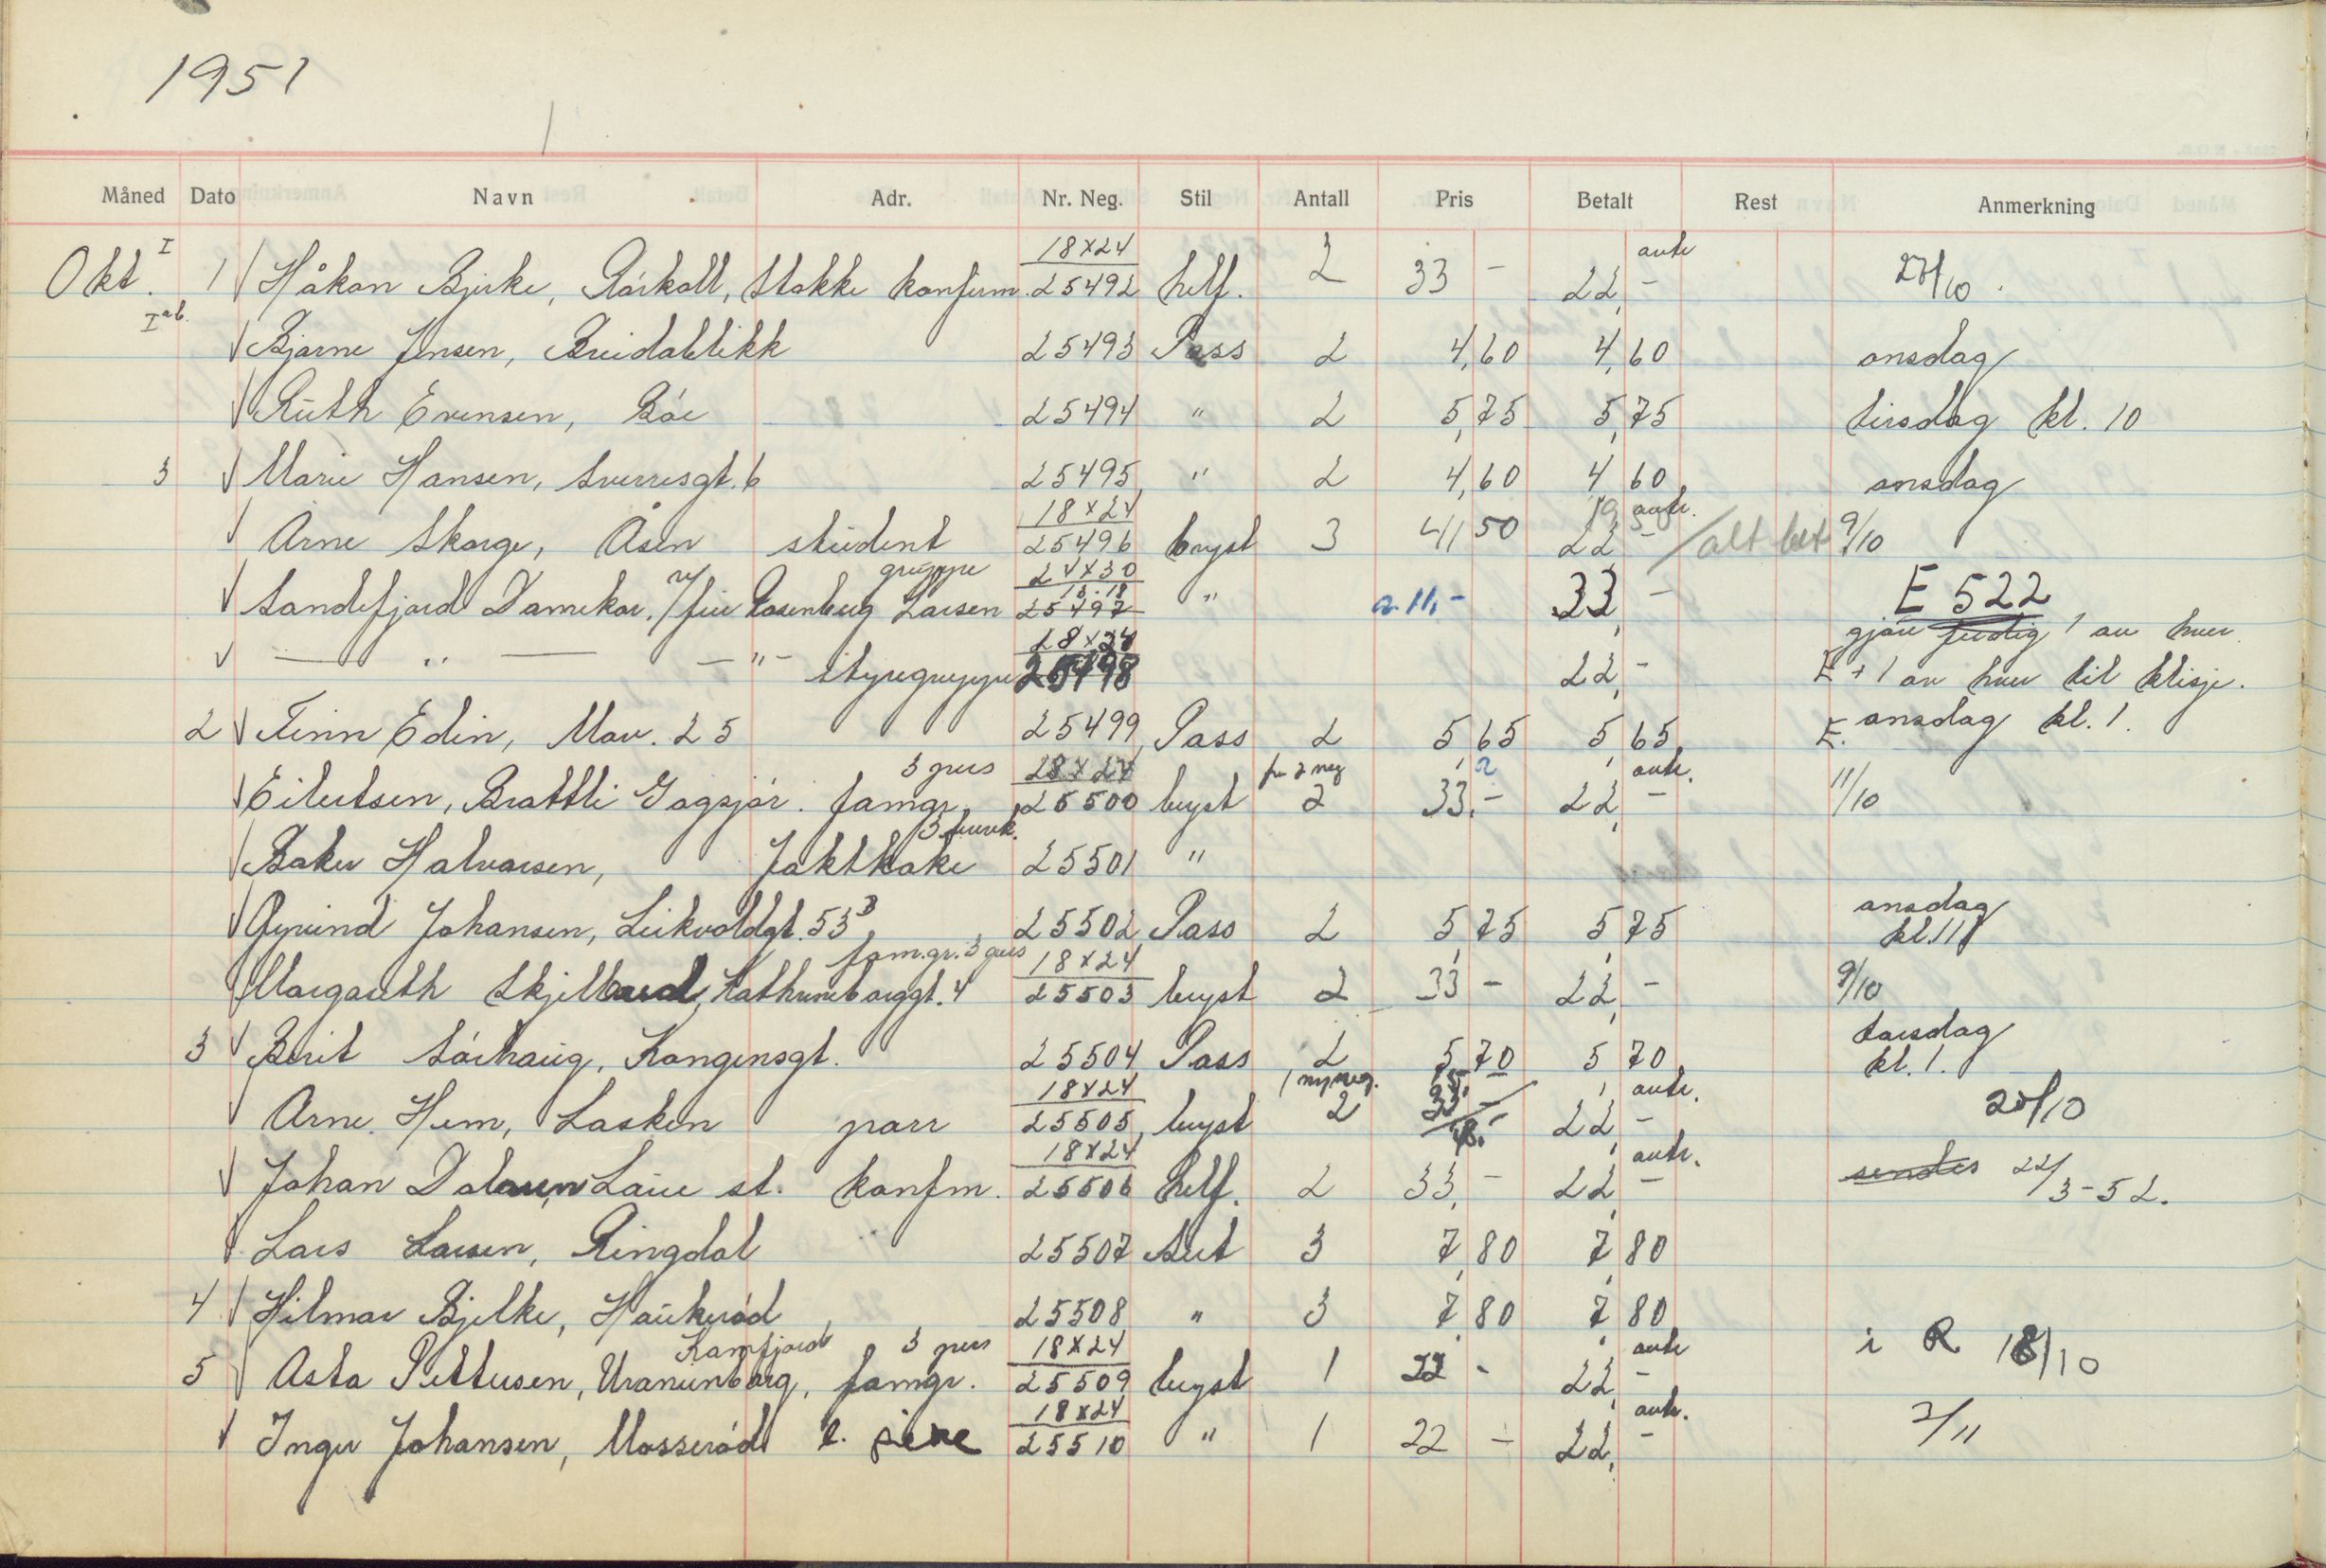 1951
Måned Dato Navn Adr. Nr. Neg. Stil Antall Pris Betalt Rest Anmerkning
Okt. I 1 Håkan Bjerke, Råstad, Stokke konfirm. 18x24 25492 helf. 2 33 - 22,- 27/10
I ab. Bjarne Jensen, Breidablikk 25493 Pass 2 4,60 4,60 onsdag
Ruth Evensen, Bøe 25494 " 2 5,75 5,75 tirsdag kl. 10
3 Marie Hansen, Sverresgt. 6 25495 " 2 4,60 4 60 onsdag
Arne Skorge, Åsen student 18x24 25496 bryst 3 41 50 22,- alt bet 9/10
Sandefjord Damekor, v/ fru Rosenberg Larsen gruppe 24x30 18.18 25497 " a 11,- 33,- E 522
— " — — " — styregruppe 18x24 25498 22,- gjøre ferdig 1 av hver
E + 1 av hver til klisje.
2 Finn Edin, Mov. 25 25499 Pass 2 5,65 5,65 E. onsdag kl. 1.
Eilertsen, Brattli Gogsjør. famgr. 3 pers 18x24 25500 bryst 2 33,- 22,- 11/10
Baker Halvorsen, Jaktkake 25501 "
Øyvind Johansen, Leikvollgt. 53B 25502 Pass 2 5,75 5,75 onsdag kl. 11
Margareth Kathrineborggt. 4 fam.gr. 3 pers 18x24 25503 bryst 2 33 - 22,- 9/10
3 Berit Sørhaug, Kongensgt. 25504 Pass 2 5,70 5 70 torsdag kl. 1.
Arne Hem, Lasken parr 18x24 25505 bryst 1 ny neg. 2 22,- 20/10
Johan st. konfm. 18x24 25506 helf. 2 33,- 22,- sendes 22/3-52.
Lars Larsen, Ringdal 25507 Sert 3 7,80 7,80
4 Hilmar Bjelke, Haukerød 25508 " 3 7,80 7,80
5 Asta Pettersen, Uranienborg, Kamfjord famgr. 3 pers 18x24 25509 bryst 1 22 - 22,- i R 18/10
Inger Johansen, Mosserød 18x24 25510 " 1 22 - 22,- 2/11